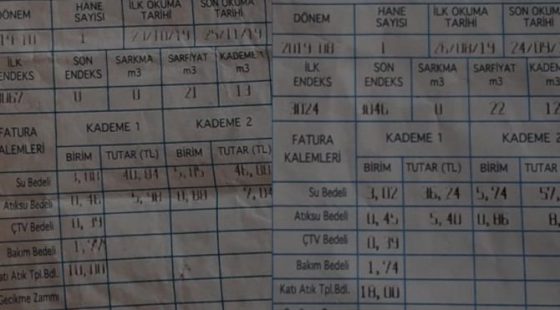 DÖNEM HANE SAYISI İLK OKUMA TARİHİ SON OKUMA TARİHİ
1 23/10/19 25/11/19
İLK ENDEKS SON ENDEKS SARKMA m3 SARFİYAT m3 KADEME m3
0 0 21 13
FATURA KALEMLERİ KADEME 1 KADEME 2
BİRİM TUTAR (TL) BİRİM TUTAR (TL)
Su Bedeli
Atıksu Bedeli 0,46
ÇTV Bedeli 0,39
Bakım Bedeli
Katı Atık Tpl.Bdl. 18,00
Gecikme Zammı
DÖNEM HANE SAYISI İLK OKUMA TARİHİ SON OKUMA TARİHİ
2019-08 1 26/08/19 24/09
İLK ENDEKS SON ENDEKS SARKMA m3 SARFİYAT m3 KADEME m3
3024 3046 0 22
FATURA KALEMLERİ KADEME 1 KADEME 2
BİRİM TUTAR (TL) BİRİM TUTAR
Su Bedeli 3,02 36,24 5,74 57
Atıksu Bedeli 0,45 5,40 0,86 8
ÇTV Bedeli 0,39
Bakım Bedeli 1,74
Katı Atık Tpl.Bdl. 18,00